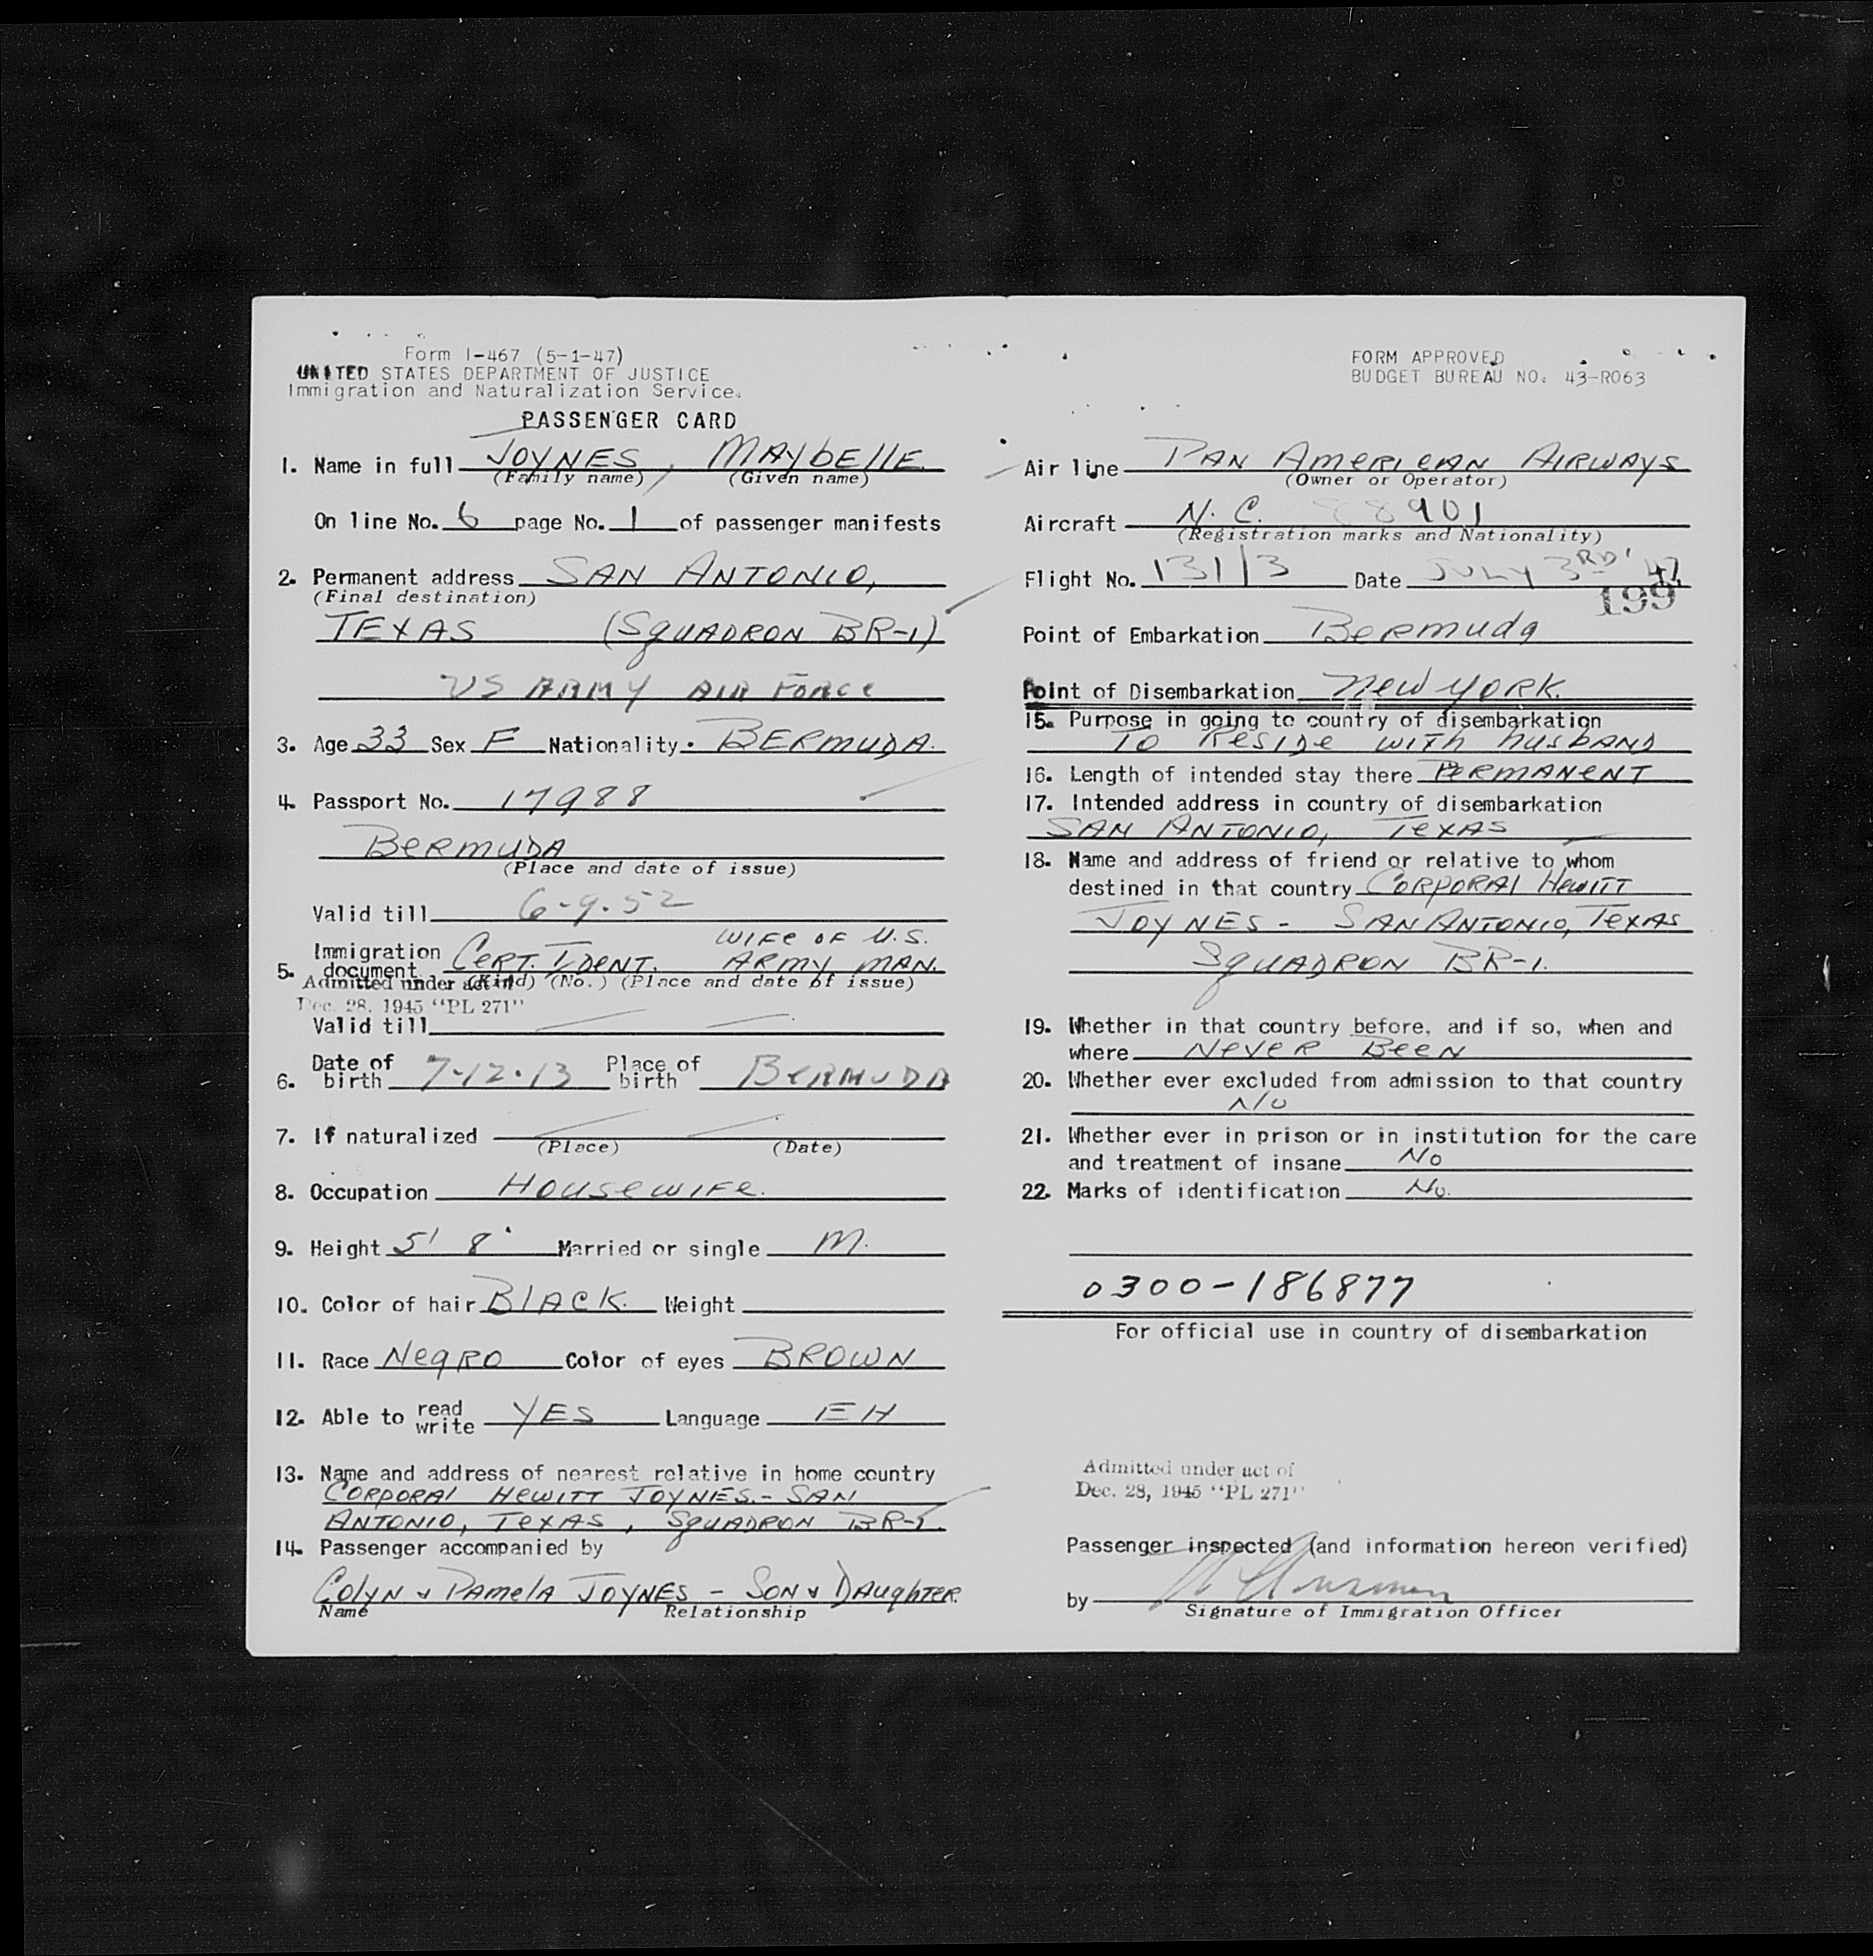 Form I-467 (5-1-47)
UNITED STATES DEPARTMENT OF JUSTICE
Immigration and Naturalization Service.
PASSENGER CARD
1. Name in full JOYNES, MAYBELLE
(Family name) (Given name)
On line No. 6 page No. 1 of passenger manifests
2. Permanent address SAN ANTONIO,
(Final destination)
TEXAS (SQUADRON BR-1)
US ARMY AIR FORCE
3. Age 33 Sex F Nationality. BERMUDA.
4. Passport No. 17988
BERMUDA
(Place and date of issue)
Valid till 6-9-52
WIFE OF U.S.
Immigration
5. document CERT. IDENT. ARMY MAN.
(Kind) (No.) (Place and date of issue)
Admitted under act of
Dec. 28, 1945 "PL 271"
Valid till
6. Date of birth 7-12-13 Place of birth BERMUDA
7. If naturalized
(Place) (Date)
8. Occupation HOUSEWIFE.
9. Height 5' 8" Married or single M.
10. Color of hair BLACK. Weight
11. Race NEGRO Color of eyes BROWN
12. Able to read write YES Language EH
13. Name and address of nearest relative in home country
CORPORAL HEWITT JOYNES. - SAN
ANTONIO, TEXAS, SQUADRON BR-1.
14. Passenger accompanied by
COLYN & PAMELA JOYNES - SON & DAUGHTER.
Name Relationship
FORM APPROVED
BUDGET BUREAU NO. 43-R063
Air line PAN AMERICAN AIRWAYS
(Owner or Operator)
Aircraft N.C. 88901
(Registration marks and Nationality)
Flight No. 131/3 Date JULY 3RD' 47
199
Point of Embarkation BERMUDA
Point of Disembarkation NEW YORK.
15. Purpose in going to country of disembarkation
TO RESIDE WITH HUSBAND
16. Length of intended stay there PERMANENT
17. Intended address in country of disembarkation
SAN ANTONIO, TEXAS
18. Name and address of friend or relative to whom
destined in that country CORPORAL HEWITT
JOYNES - SAN ANTONIO, TEXAS
SQUADRON BR-1.
19. Whether in that country before, and if so, when and
where NEVER BEEN
20. Whether ever excluded from admission to that country
NO
21. Whether ever in prison or in institution for the care
and treatment of insane NO
22. Marks of identification NO.
0300-186877
For official use in country of disembarkation
Admitted under act of
Dec. 28, 1945 "PL 271"
Passenger inspected (and information hereon verified)
by
Signature of Immigration Officer